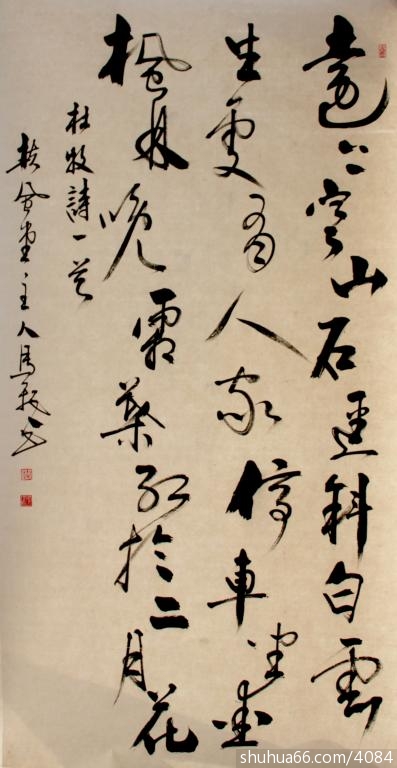 遠上寒山石徑斜白雲
生處有人家停車坐愛
楓林晚霜葉紅於二月花
杜牧詩一首
扶風堂主人馬书
shuhua66.com/4084